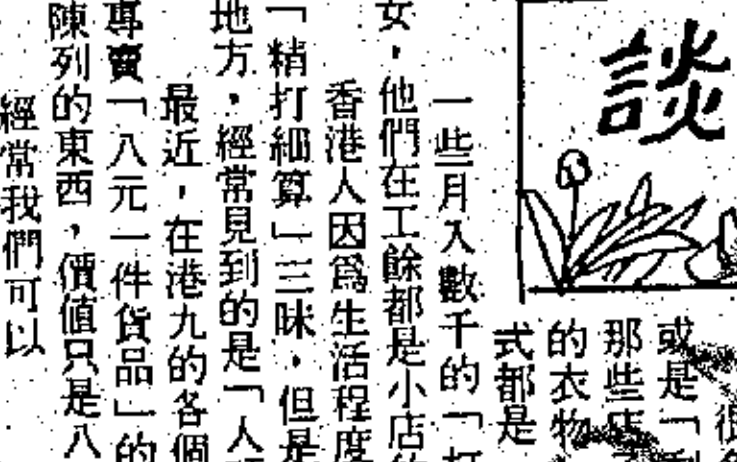 談
或是「
那些店
的衣物
式都是
一些月入數千的「打
女，他們在工餘都是小店
香港人因爲生活程度
「精打細算」三昧，但是
地方，經常見到的是「人
最近，在港九的各個
專賣「八元一件貨品」的
陳列的東西，價値只是八
經常我們可以